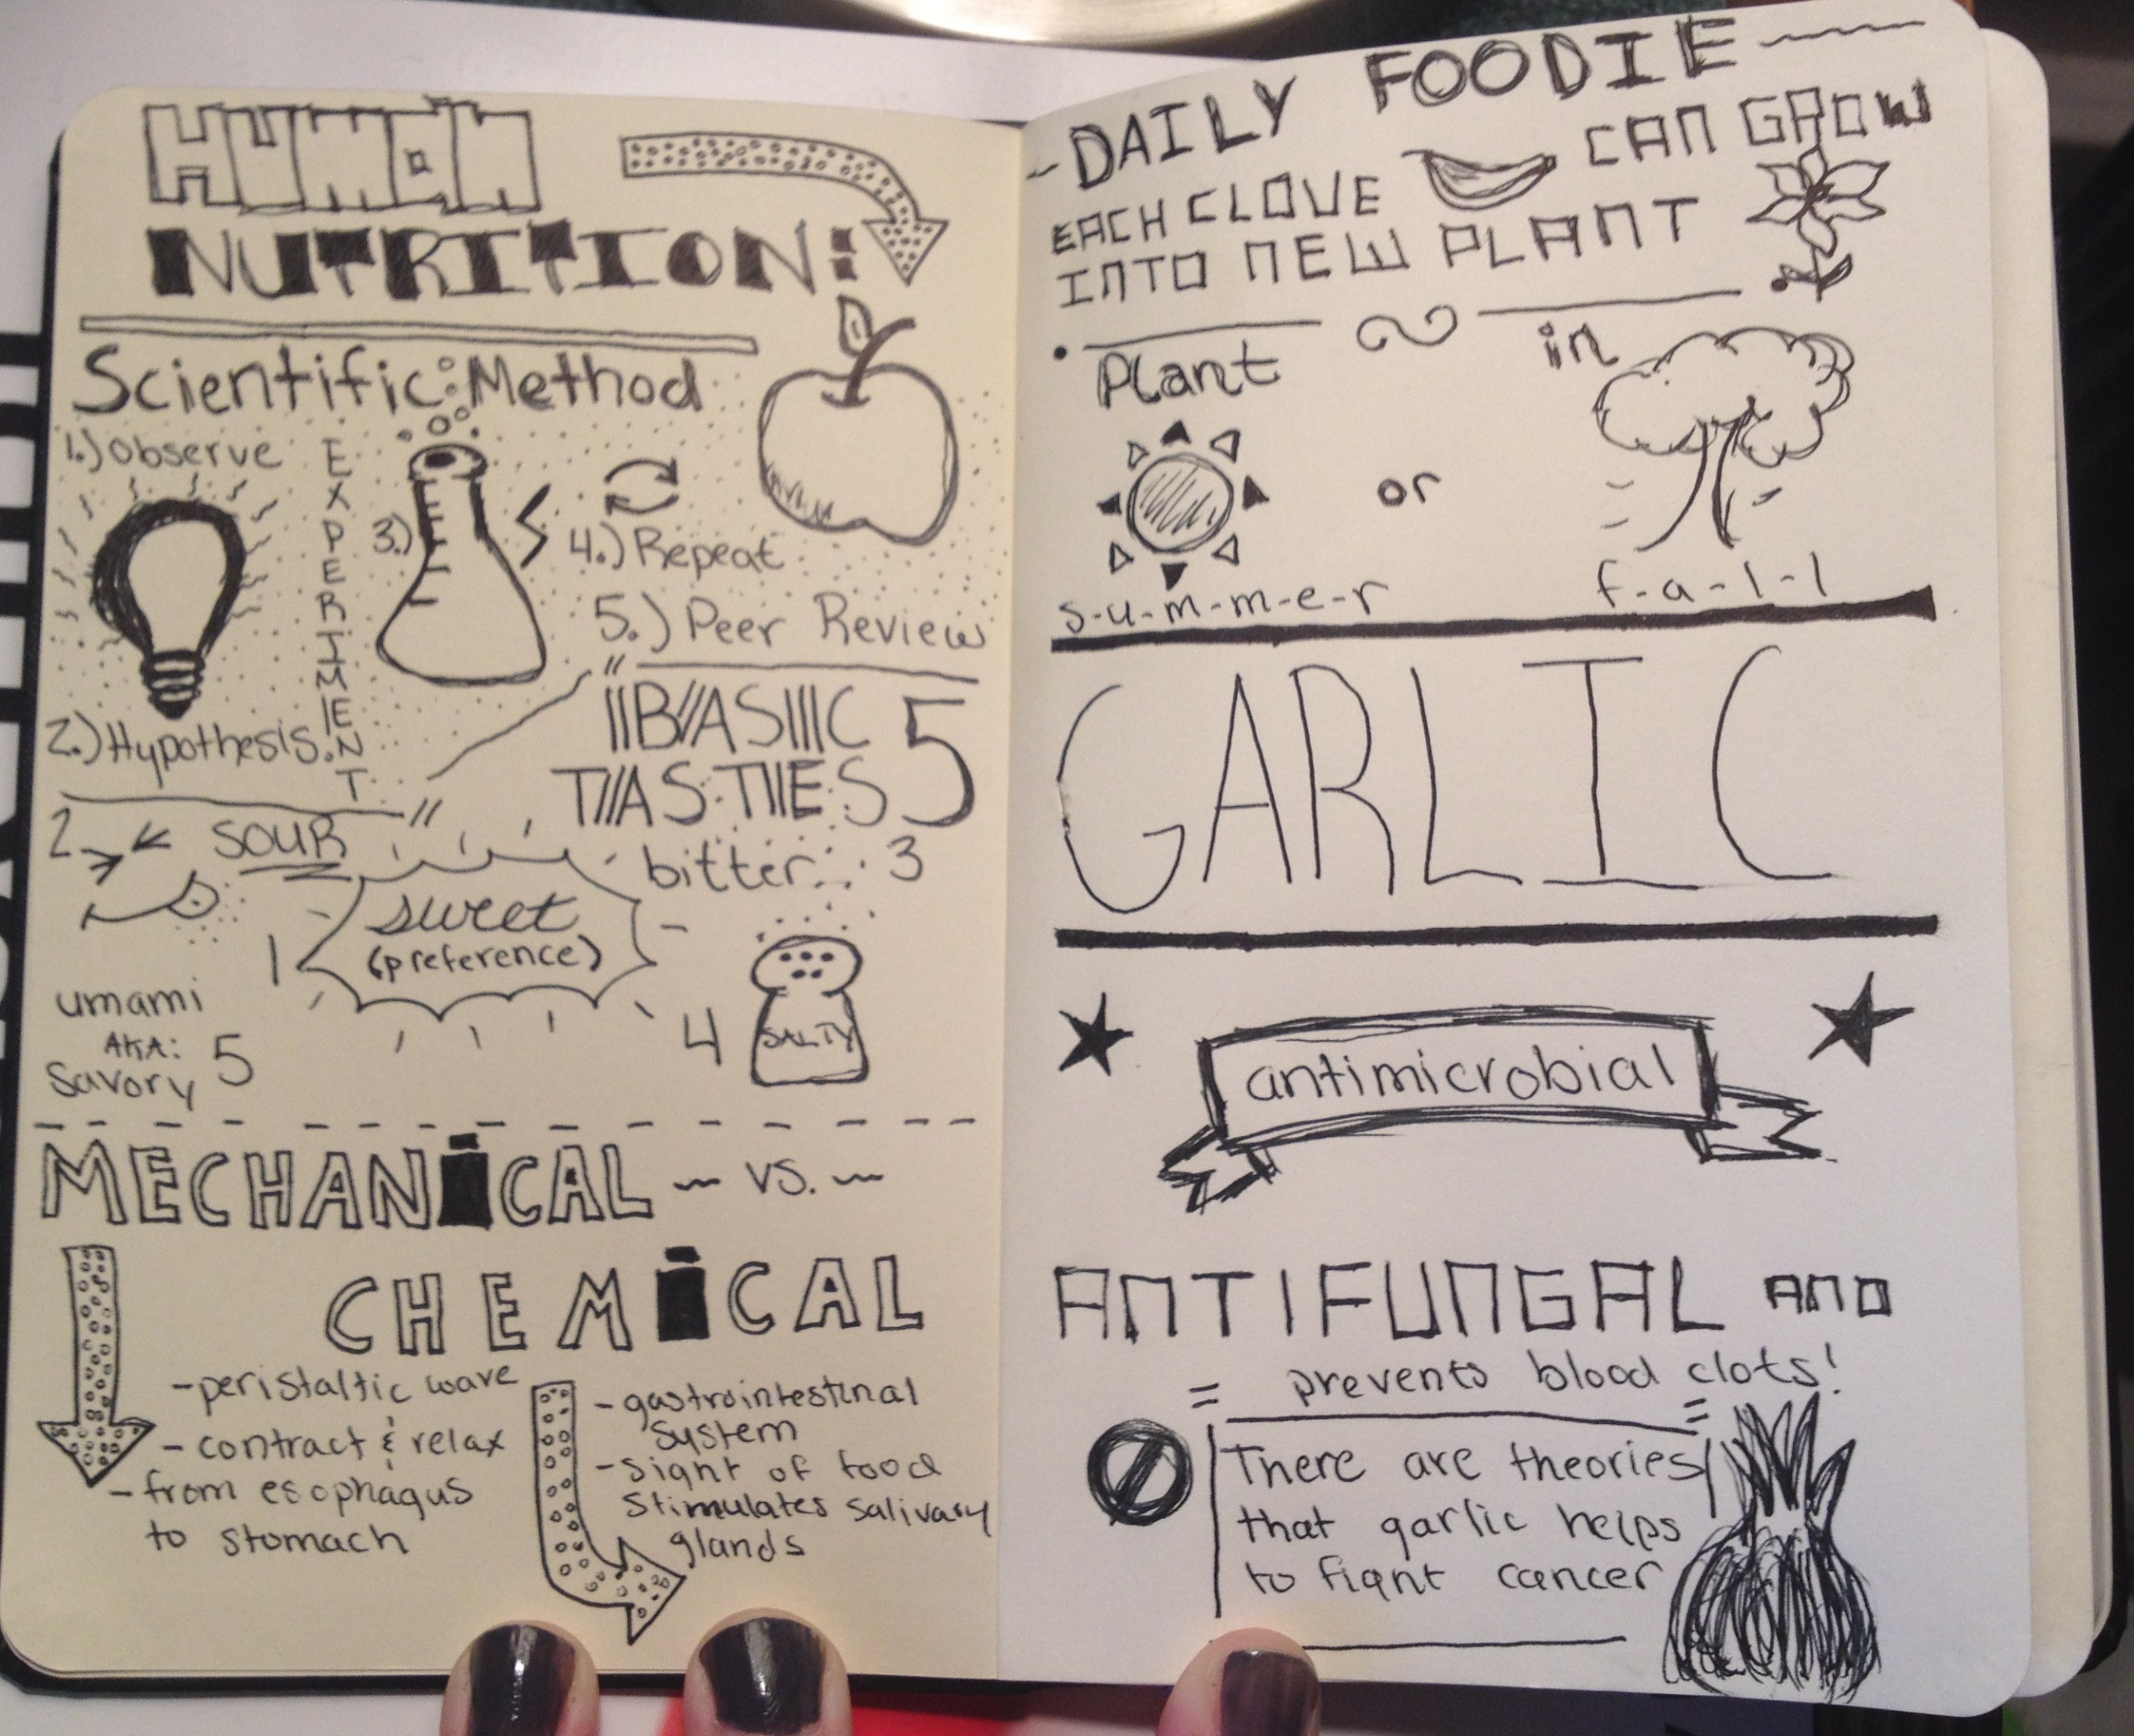 HUMAN
NUTRITION:
Scientific Method
1.) Observe
2.) Hypothesis
3.)
EXPERIMENT
4.) Repeat
5.) Peer Review
BASIC
TASTES 5
2 SOUR
bitter 3
1 sweet
(preference)
umami
AKA:
Savory 5
4 SALTY
MECHANICAL ~ vs. ~
CHEMICAL
- peristaltic wave
- contract & relax
- from esophagus
to stomach
- gastrointestinal
system
- sight of food
stimulates salivary
glands
DAILY FOODIE
EACH CLOVE CAN GROW
INTO NEW PLANT
Plant in
or
s-u-m-m-e-r f-a-l-l
GARLIC
antimicrobial
ANTIFUNGAL AND
= prevents blood clots! =
There are theories
that garlic helps
to fight cancer